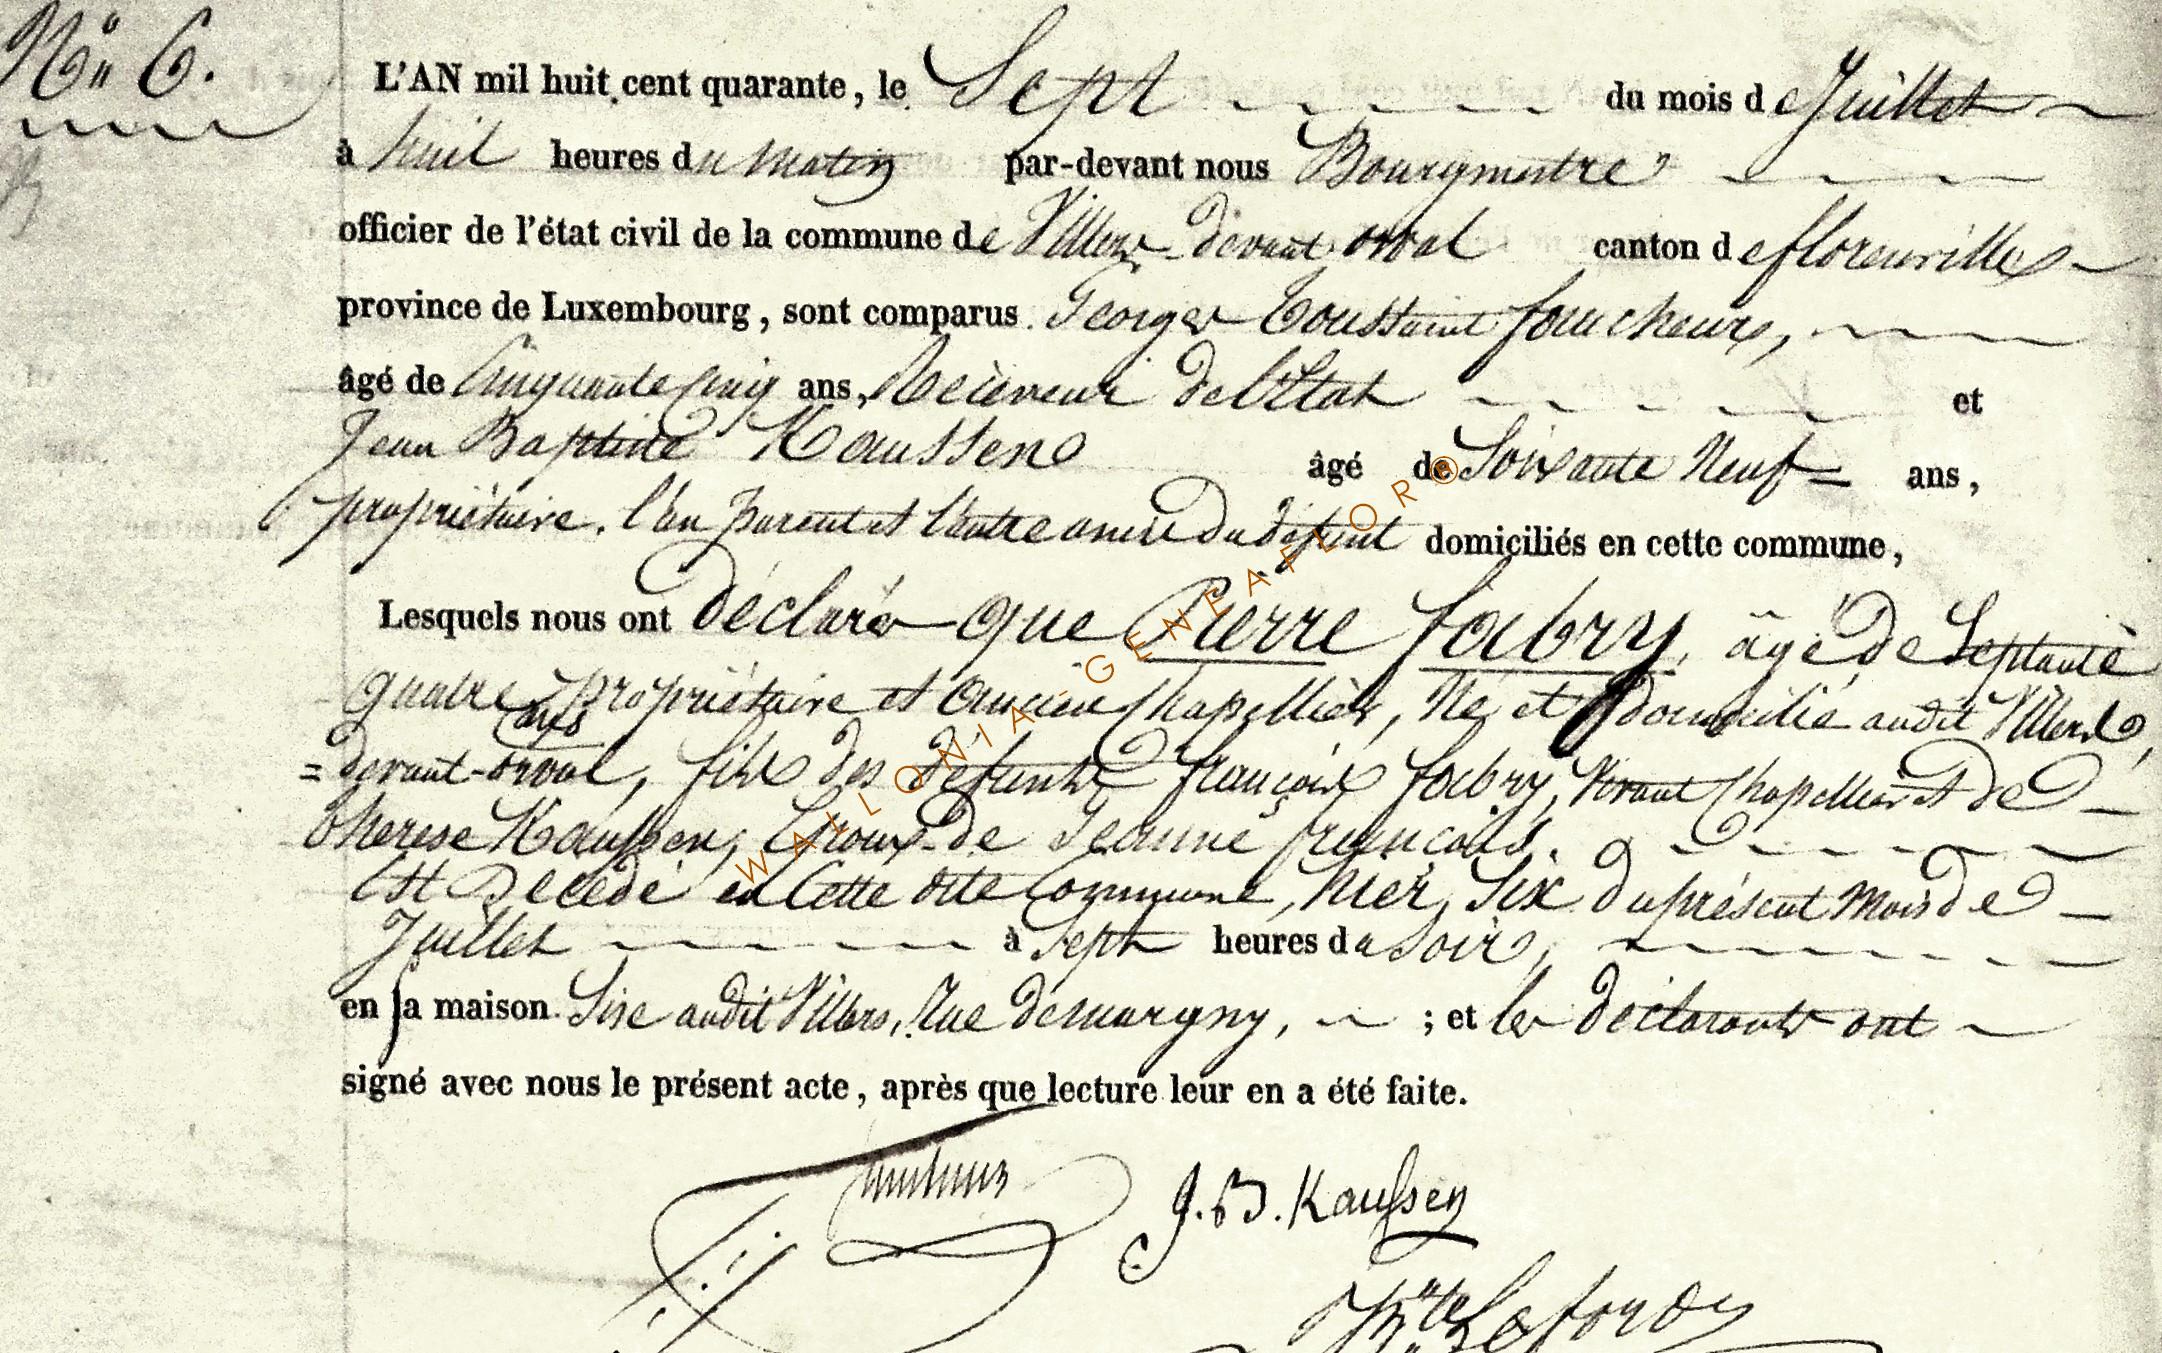 N° 6.
L'AN mil huit cent quarante, le Sept du mois de Juillet
à huit heures du matin par-devant nous Bourgmestre
officier de l'état civil de la commune de Villers-devant orval canton de florenville
province de Luxembourg, sont comparus Georges Toussaint foucheux,
âgé de Cinquante Cinq ans, Receveur de l'Etat et
Jean Baptiste Kaussen âgé de Soixante Neuf ans,
propriétaire, l'un parent et l'autre amis du défunt domiciliés en cette commune,
Lesquels nous ont déclaré que Pierre fabry, âgé de Septante
quatre ans propriétaire et ancien Chapellier, Né et domicilié audit Villers,
= devant-orval, fils des défunts françois fabry, Vivant Chapellier et de
therese Kaussen, Epoux de Jeanne françois.
Est Décédé en Cette dite Commune, hier, Six du présent mois de
Juillet à Sept heures du Soir,
en sa maison Sise audit Villers, Rue demargny, ; et les déclarants ont
signé avec nous le présent acte, après que lecture leur en a été faite.
J. B. Kaussen
WALLONIA-GENEAFLOR©